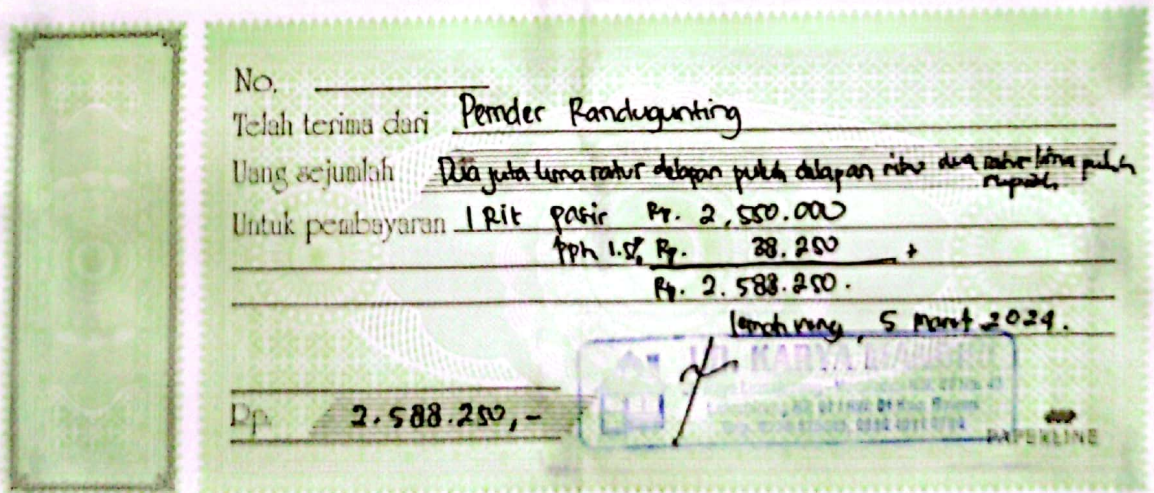 No.
Telah terima dari Pemdes Randugunting
Uang sejumlah Dua juta lima ratus delapan puluh delapan ribu dua ratus lima puluh
rupiah
Untuk pembayaran 1 Rit pasir Rp. 2,550.000
pph 1.5% Rp. 38.250 +
Rp. 2.588.250.
5 Maret 2024.
UD. KARYA MANDIRI
Rp. 2.588.250,-
PAPERLINE